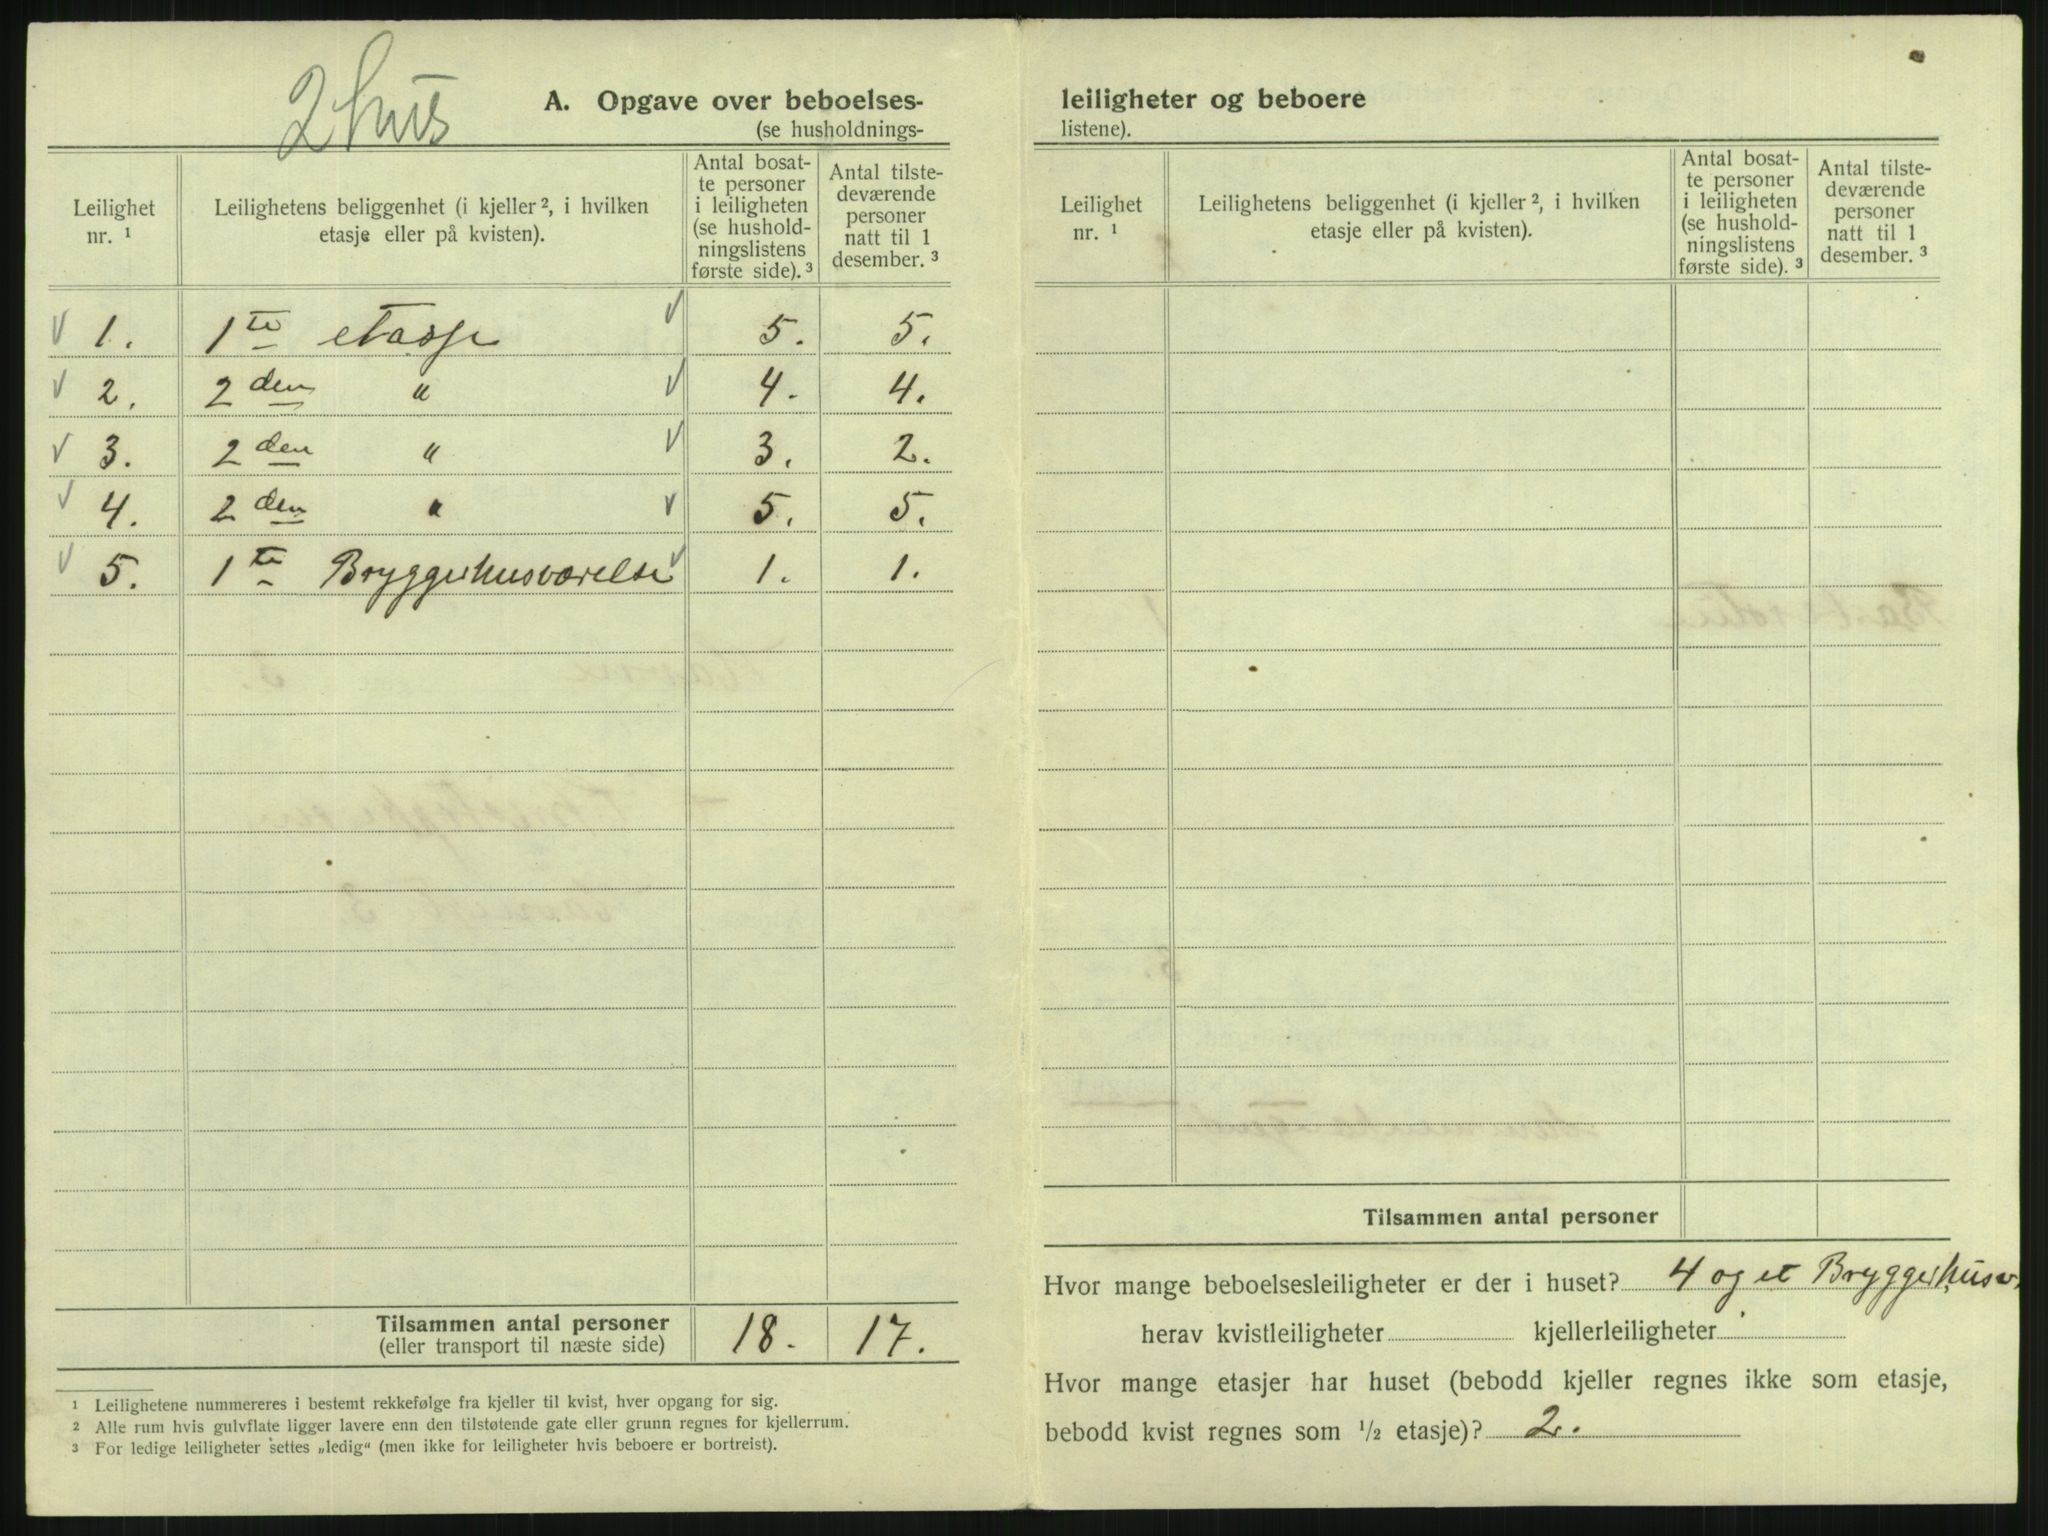 2 hus
A. Opgave over beboelses-
(se husholdnings-
Leilighet nr. 1
Leilighetens beliggenhet (i kjeller 2, i hvilken etasje eller på kvisten).
Antal bosatte personer i leiligheten (se husholdningslistens første side). 3
Antal tilstedeværende personer natt til 1 desember. 3
1. 1ste etasje 5. 5.
2. 2den " 4. 4.
3. 2den " 3. 2.
4. 2den " 5. 5.
5. 1ste Bryggerhusværelse 1. 1.
Tilsammen antal personer 18. 17.
(eller transport til næste side)
1 Leilighetene nummereres i bestemt rekkefølge fra kjeller til kvist, hver opgang for sig.
2 Alle rum hvis gulvflate ligger lavere enn den tilstøtende gate eller grunn regnes for kjellerrum.
3 For ledige leiligheter settes „ledig“ (men ikke for leiligheter hvis beboere er bortreist).
leiligheter og beboere
listene).
Leilighet nr. 1
Leilighetens beliggenhet (i kjeller 2, i hvilken etasje eller på kvisten).
Antal bosatte personer i leiligheten (se husholdningslistens første side). 3
Antal tilstedeværende personer natt til 1 desember. 3
Tilsammen antal personer
Hvor mange beboelsesleiligheter er der i huset? 4 og et Bryggerhusv.
herav kvistleiligheter kjellerleiligheter
Hvor mange etasjer har huset (bebodd kjeller regnes ikke som etasje,
bebodd kvist regnes som 1/2 etasje)? 2.